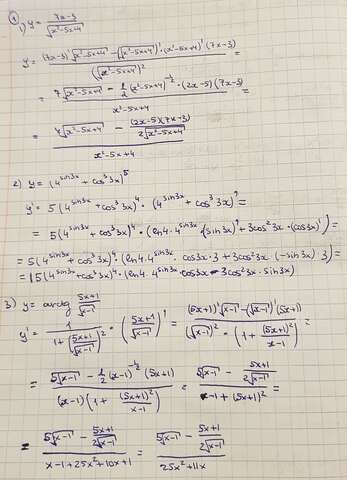 ① 1) y = (7x-3)/√(x²-5x+4)
y = ((7x-3)'√(x²-5x+4) - √(x²-5x+4)'·(x²-5x+4)'(7x-3))/(√(x²-5x+4))² =
= (7√(x²-5x+4) - 1/2(x²-5x+4)^(-1/2)·(2x-5)(7x-3))/(x²-5x+4) =
= (7√(x²-5x+4) - (2x-5)(7x-3)/(2√(x²-5x+4)))/(x²-5x+4)
2) y = (4^(sin3x) + cos³3x)⁵
y' = 5(4^(sin3x) + cos³3x)⁴·(4^(sin3x) + cos³3x)' =
= 5(4^(sin3x) + cos³3x)⁴·(ln4·4^(sin3x)·(sin3x)' + 3cos²3x·(cos3x)') =
= 5(4^(sin3x) + cos³3x)⁴(ln4·4^(sin3x)·cos3x·3 + 3cos²3x·(-sin3x)·3) =
= 15(4^(sin3x) + cos³3x)⁴(ln4·4^(sin3x)·cos3x - 3cos²3x·sin3x)
3) y = arctg (5x+1)/√(x-1)
y' = 1/(1+((5x+1)/√(x-1))²)·((5x+1)/√(x-1))' = ((5x+1)'√(x-1) - (√(x-1))'(5x+1))/((√(x-1))²·(1+(5x+1)²/(x-1))) =
= (5√(x-1) - 1/2(x-1)^(-1/2)(5x+1))/((x-1)(1+(5x+1)²/(x-1))) = (5√(x-1) - (5x+1)/(2√(x-1)))/(x-1+(5x+1)²) =
= (5√(x-1) - (5x+1)/(2√(x-1)))/(x-1+25x²+10x+1) = (5√(x-1) - (5x+1)/(2√(x-1)))/(25x²+11x)